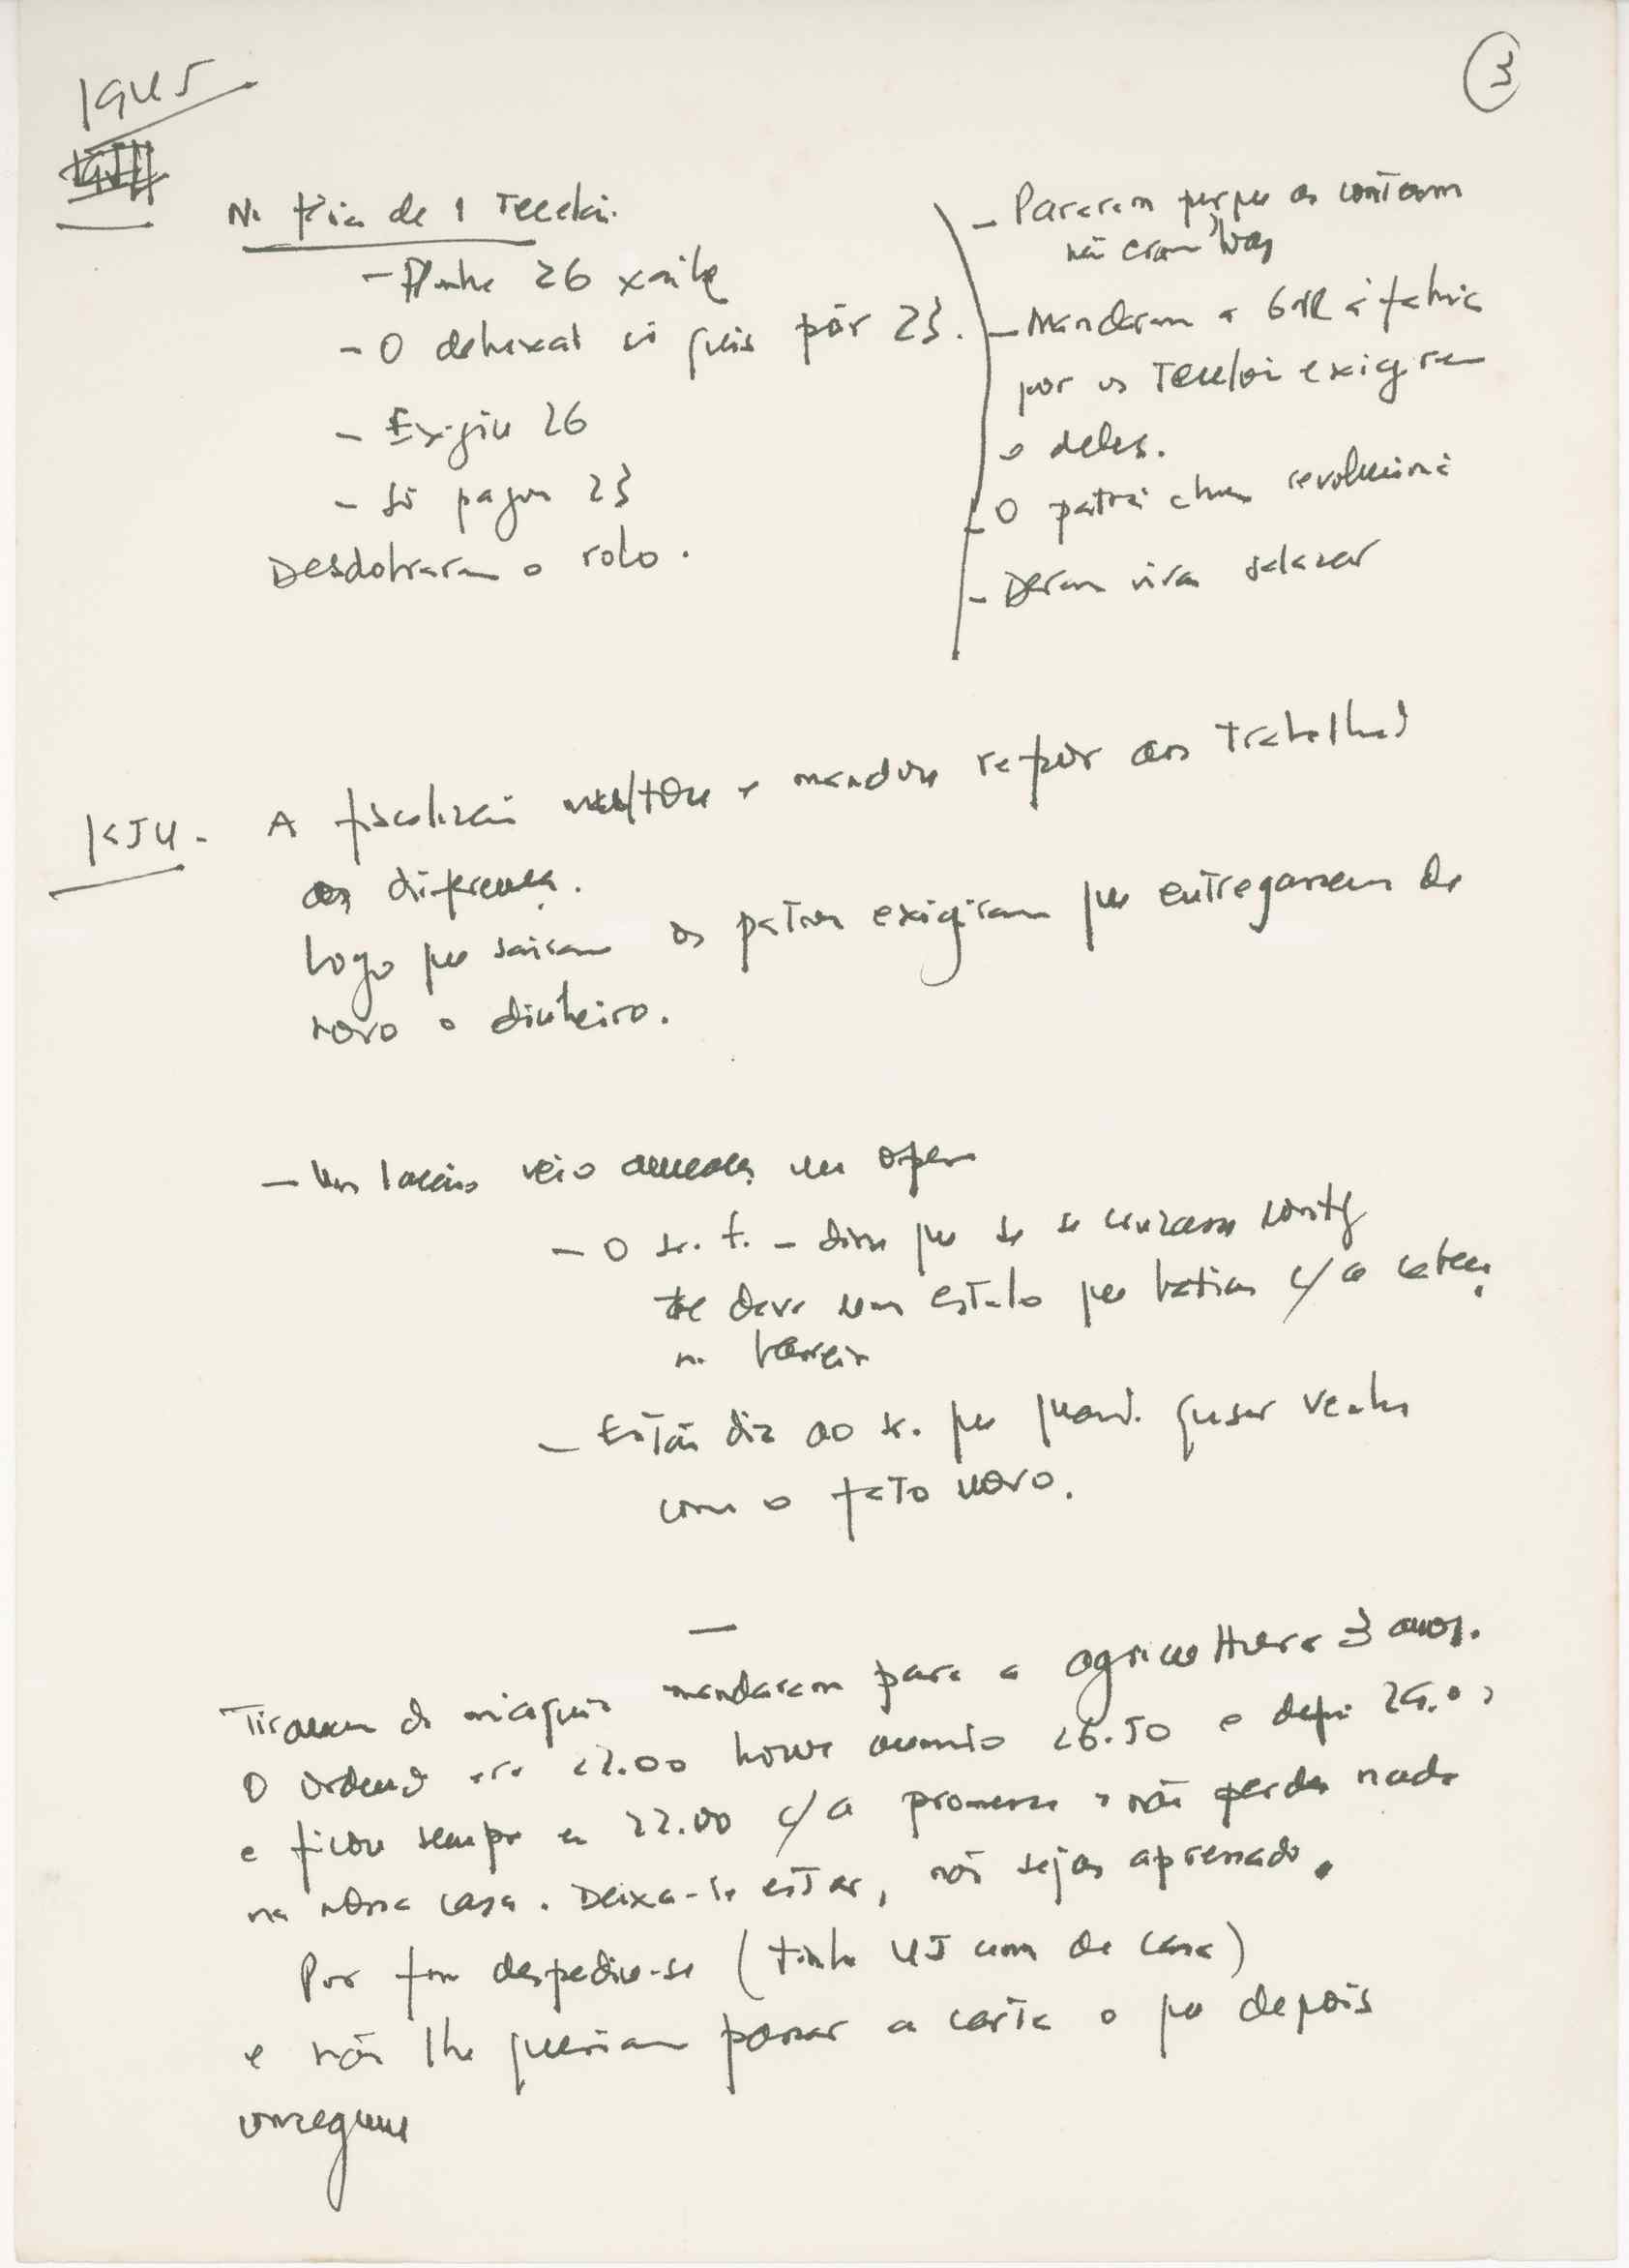 3
1945
Na fria de 1 Tecelão.
- Tinha 26 xailes
- O debuxad só quis pôr 23.
- Exigiu 26
- Só pagou 23
Desdobraram o rolo.
- Pararam porque as contavam
não eram boas
- Mandaram a GNR à fabric
por os Tecelões exigirem
o deles.
- O patrão chamou revolucioná
- Deram vivas Salazar
1954 - A fiscalização e mandou repor aos trabalhad
as diferenças.
Logo que saíram os patrões exigiram que entregassem de
novo o dinheiro.
- Um lacaio veio ameaçar um oper
- O sr. f. - disse que se se cruzasse contg
te dava um estalo que batias c/ a cabeça
na barreira
- Então diz ao sr. que quand. quiser venha
com o fato novo.
Tiraram da máquina mandaram para a agricultura 3 anos.
O ordenado era 22.00 houve aumento 26.50 e depois
e ficou sempre em 22.00 c/ a promessa não perdes nada
na nossa casa. Deixa-te estar, não sejas apressado.
Por fim despediu-se (tinha 45 anos de casa)
e não lhe queriam passar a carta o que depois
conseguiu